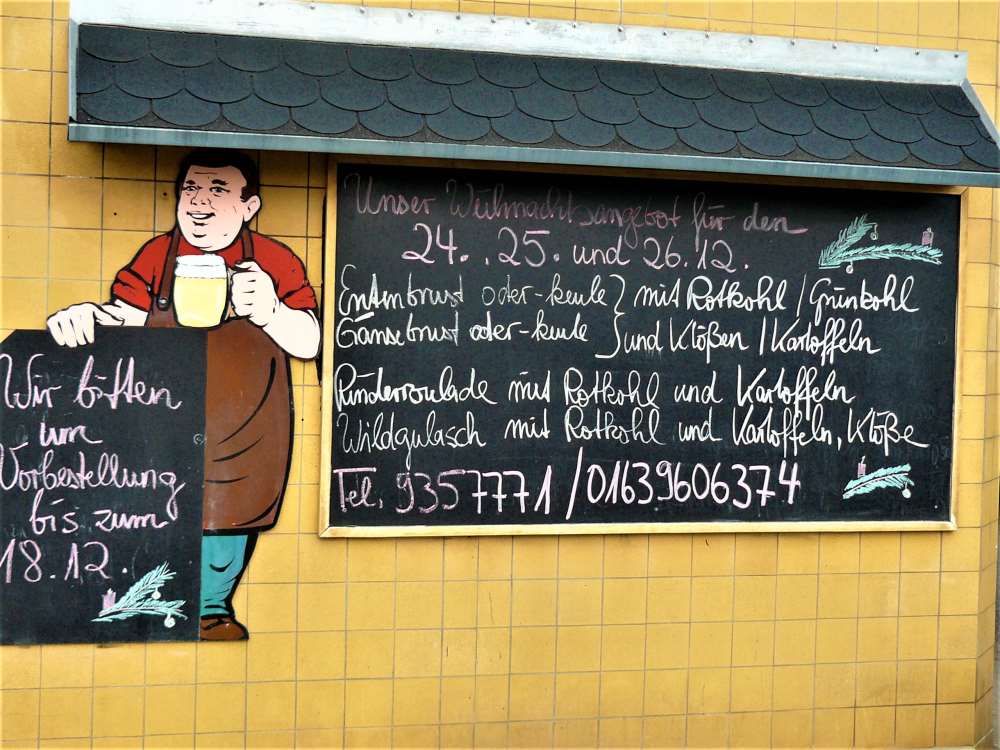 Wir bitten
um
Vorbestellung
bis zum
18.12.
Unser Weihnachtsangebot für den
24. . 25. und 26.12.
Entenbrust oder -keule } mit Rotkohl / Grünkohl
Gänsebrust oder -keule } und Klößen / Kartoffeln
Rinderroulade mit Rotkohl und Kartoffeln
Wildgulasch mit Rotkohl und Kartoffeln, Klöße
Tel. 9357771 / 01639606374